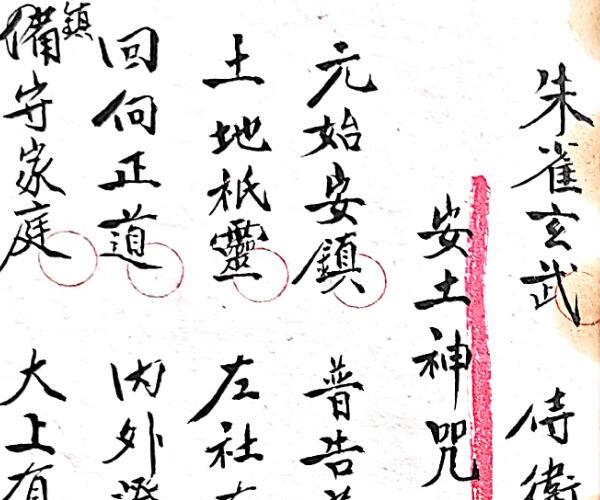 朱雀玄武 侍衛
安土神咒
元始安鎮 普告
土地祇靈 左社
回向正道 内外澄
鎮
備守家庭 大上有